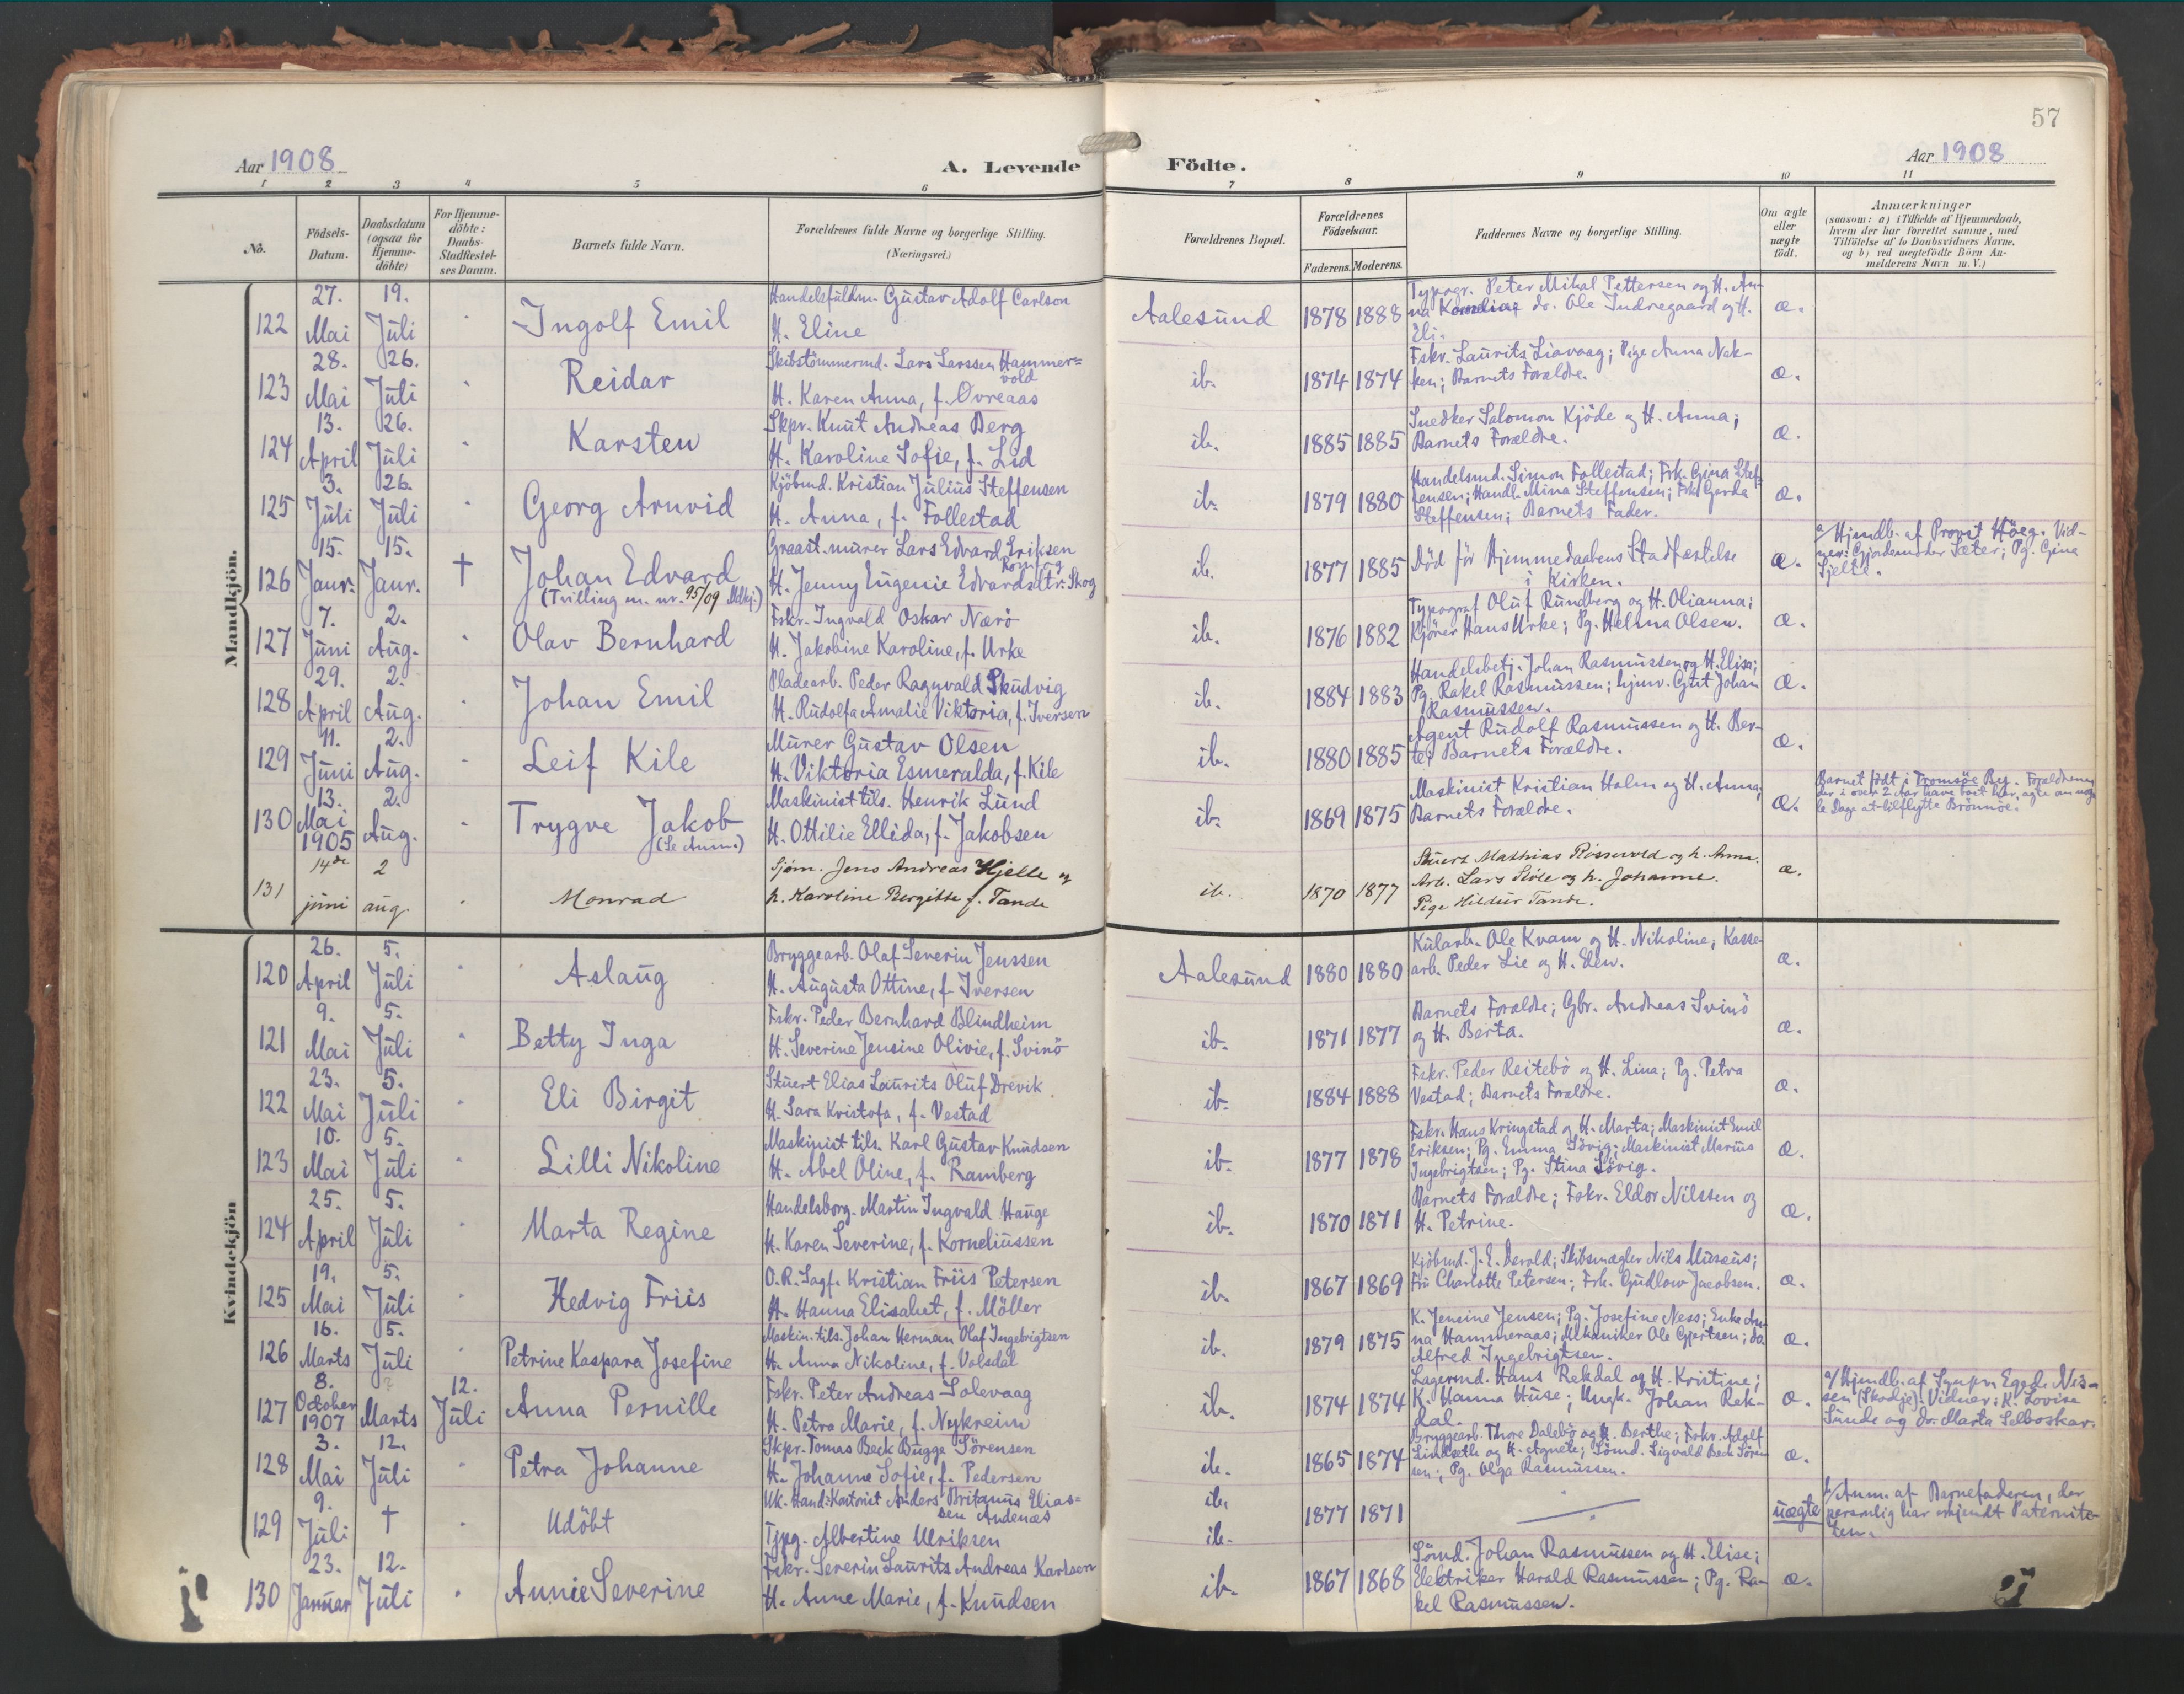 57
Aar 1908
A. Levende
Födte.
Aar 1908
1 2 3 4 5 6 7 8 9 10 11
No.
Födsels-
Datum.
Daabsdatum
(ogsaa for
Hjemme-
döbte)
For Hjemme-
döbte:
Daabs-
Stadfæstel-
ses Datum.
Barnets fulde Navn.
Forældrenes fulde Navne og borgerlige Stilling.
(Næringsvei.)
Forældrenes Bopæl.
Forældrenes
Födselsaar.
Faderens. Moderens.
Faddernes Navne og borgerlige Stilling.
Om ægte
eller
uægte
födt.
Anmærkninger
(saasom: a) i Tilfælde af Hjemmedaab,
hvem der har forrettet samme, med
Tilföielse af to Daabsvidners Navne,
og b) ved uægtefödte Börn An-
melderens Navn m. V.)
Mandkjön.
122
27.
Mai
19.
Juli
Ingolf Emil
Handelsfuldm. Gustav Adolf Carlson
H. Eline
Aalesund
1878 1888
Typogr. Peter Mihal Pettersen og H. An-
na; do. Ole Indregaard og H.
Eli.
æ.
123
28.
Mai
26.
Juli
Reidar
Skibstömmermd. Lars Larssen Hammer=
vold
H. Karen Anna, f. Ovreaas
ib.
1874 1874
Fskr. Laurits Liavaag; Pige Anna Nek-
ken; Barnets Forældre.
æ.
124
13.
April
26.
Juli
Karsten
Skpr. Knut Andreas Berg
H. Karoline Sofie, f. Lid
ib.
1885 1885
Snedker Salomon Kjöde og H. Anna;
Barnets Forældre.
æ.
125
3.
Juli
26.
Juli
Georg Arnvid
Kjöbmd. Kristian Julius Steffensen
H. Anna, f. Follestad
ib.
1879 1880
Handelsmd. Simon Follestad; Frk. Gina Stef-
fensen; Handl. Mina Steffensen; Frk. Gerda
Steffensen; Barnets Fader.
æ.
126
15.
Janr.
15.
Janr.
†
Johan Edvard
(Tvilling m. nr. 95/09 Mdkj.)
Graast.murer Lars Edvard Eriksen
Romfog
H. Jenny Eugenie Edvardsdtr. Skog
ib.
1877 1885
Död för Hjemmedaabens Stadfæstelse
i Kirken.
æ.
a/ Hjmdb. af Provst Höeg. Vid-
ner: Gjordemoder Sæter; Pg. Gina
Sjelle.
127
7.
Juni
2.
Aug.
Olav Bernhard
Fskr. Ingvald Oskar Nærö
H. Jakobine Karoline, f. Urke
ib.
1876 1882
Typograf Oluf Rundberg og H. Olianna;
Kjörer Hans Urke; Pg. Helma Olsen.
æ.
128
29.
April
2.
Aug.
Johan Emil
Pladearb. Peder Ragnvald Skudvig
H. Rudolfa Amalie Viktoria, f. Iversen
ib.
1884 1883
Handelsbetj. Johan Rasmussen og H. Elisa;
Pg. Rakel Rasmussen; hjmv. Gut Johan
Rasmussen.
æ.
129
11.
Juni
2.
Aug.
Leif Kile
Murer Gustav Olsen
H. Viktoria Esmeralda, f. Kile
ib.
1880 1885
Agent Rudolf Rasmussen og H. Ber-
te; Barnets Forældre.
æ.
130
13.
Mai
1905
2.
Aug.
Trygve Jakob
(Se Anm.)
Maskinist tils. Henrik Lund
H. Ottilie Ellida, f. Jakobsen
ib.
1869 1875
Maskinist Kristian Holm og H. Anna;
Barnets Forældre.
æ.
Barnet födt i Tromsöe By. Forældrene,
der i over 2 Aar have boet her, agte om nog-
le Dage at tilflytte Brönnöe.
131
14de
juni
2
aug.
Monrad
Sjøm. Jens Andreas Hjelle og
h. Karoline Bergitte f. Tande
ib.
1870 1877
Stuert Mathias Røssevold og h. Anna.
Arb. Lars Støle og h. Johanne.
Pige Hildur Tande.
æ.
Kvindekjön
120
26.
April
5.
Juli
Aslaug
Bryggearb. Olaf Severin Jenssen
H. Augusta Ottine, f. Iversen
Aalesund
1880 1880
Kularb. Ole Kvam og H. Nikoline; Kasse-
arb. Peder Lie og H. Elen.
æ.
121
9.
Mai
5.
Juli
Betty Inga
Fskr. Peder Bernhard Blindheim
H. Severine Jensine Olivie, f. Svinö
ib.
1871 1877
Barnets Forældre; Gbr. Andreas Svinö
og H. Berta.
æ.
122
23.
Mai
5.
Juli
Eli Birgit
Stuert Elias Laurits Oluf Drevik
H. Sara Kristofa, f. Vestad
ib.
1884 1888
Fskr. Peder Reitebö og H. Lina; Pg. Petra
Vestad; Barnets Forældre.
æ.
123
10.
Mai
5.
Juli
Lilli Nikoline
Maskinist tils. Karl Gustav Knudsen
H. Abel Oline, f. Ramberg
ib.
1877 1878
Fskr. Hans Kringstad og H. Marta; Maskinist Emil
Eriksen; Pg. Emma Lövig; Maskinist Marius
Ingebrigtsen; Pg. Stina Lövig.
æ.
124
25.
April
5.
Juli
Marta Regine
Handelsborg. Martin Ingvald Hauge
H. Karen Severine, f. Korneliussen
ib.
1870 1871
Barnets Forældre; Fskr. Eldor Nilssen og
H. Petrine.
æ.
125
19.
Mai
5.
Juli
Hedvig Friis
O.R.Sagf. Kristian Friis Petersen
H. Hanna Elisabet, f. Möller
ib.
1867 1869
Kjöbmd. J. E. Devold; Skibsmægler Nils Musæus;
Fru Charlotte Petersen; Frk. Gudlow Jacobsen.
æ.
126
16.
Marts
5.
Juli
Petrine Kaspara Josefine
Maskin. tils. Johan Herman Olaf Ingebrigtsen
H. Anna Nikoline, f. Volsdal
ib.
1879 1875
K. Jensine Jensen; Pg. Josefine Ness; Enke An-
na Hammeraas; Mekaniker Ole Gjertsen; do
Alfred Ingebrigtsen.
æ.
127
8.
October
1907
?
Marts
12.
Juli
Anna Pernille
Fskr. Peter Andreas Solevaag
H. Petra Marie, f. Nykreim
ib.
1874 1874
Lagermd. Hans Rekdal og H. Kristine;
K. Hanna Huse; Ungk. Johan Rek-
dal.
æ.
a/ Hjmdb. af Sognpr. Egede Nis-
sen (Skodje). Vidner: K. Lovise
Sunde og do. Marta Selboskar.
128
3.
Mai
12.
Juli
Petra Johanne
Skpr. Tomas Beck Bugge Sörensen
H. Johanne Sofie, f. Pedersen
ib.
1865 1874
Bryggearb. Thore Dalebö og H. Berthe; Fskr. Adolf
Lindseth og H. Agnete; Sömd. Sigvald Beck Sören-
sen; Pg. Olga Rasmussen.
æ.
129
9.
Juli
†
Udöbt
Uk. Hand: Kontorist Anders Britanus Elias=
sen Andenæs
Tjpg. Albertine Ulriksen
ib.
ib.
1877 1871
uægte
b/ Anm. af Barnefaderen, der
personlig har erkjendt Paternite-
ten.
130
23.
Januar
12.
Juli
Annie Severine
Fskr. Severin Laurits Andreas Karlsen
H. Anne Marie, f. Knudsen
ib.
1867 1868
Sömd. Johan Rasmussen og H. Elise;
Elektriker Harald Rasmussen; Pg. Ra-
kel Rasmussen.
æ.